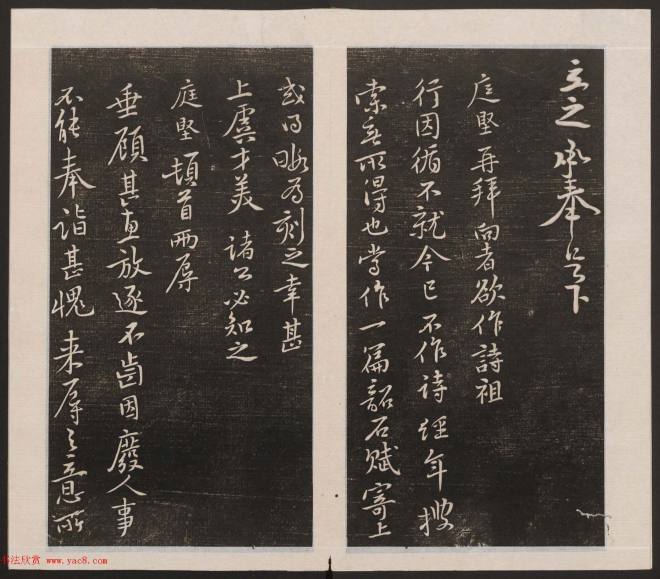 立之承奉足下
庭堅再拜向者欲作詩祖
行因循不就今已不作诗经年搜
索無所得也嘗作一篇韶石赋寄上
或可
為刻之幸甚
上虞才美諸公必知之
庭堅頓首兩辱
垂顾甚惠放逐不齒因廢人事
不能奉詣甚愧来辱之意所
书法欣赏 www.yac8.com